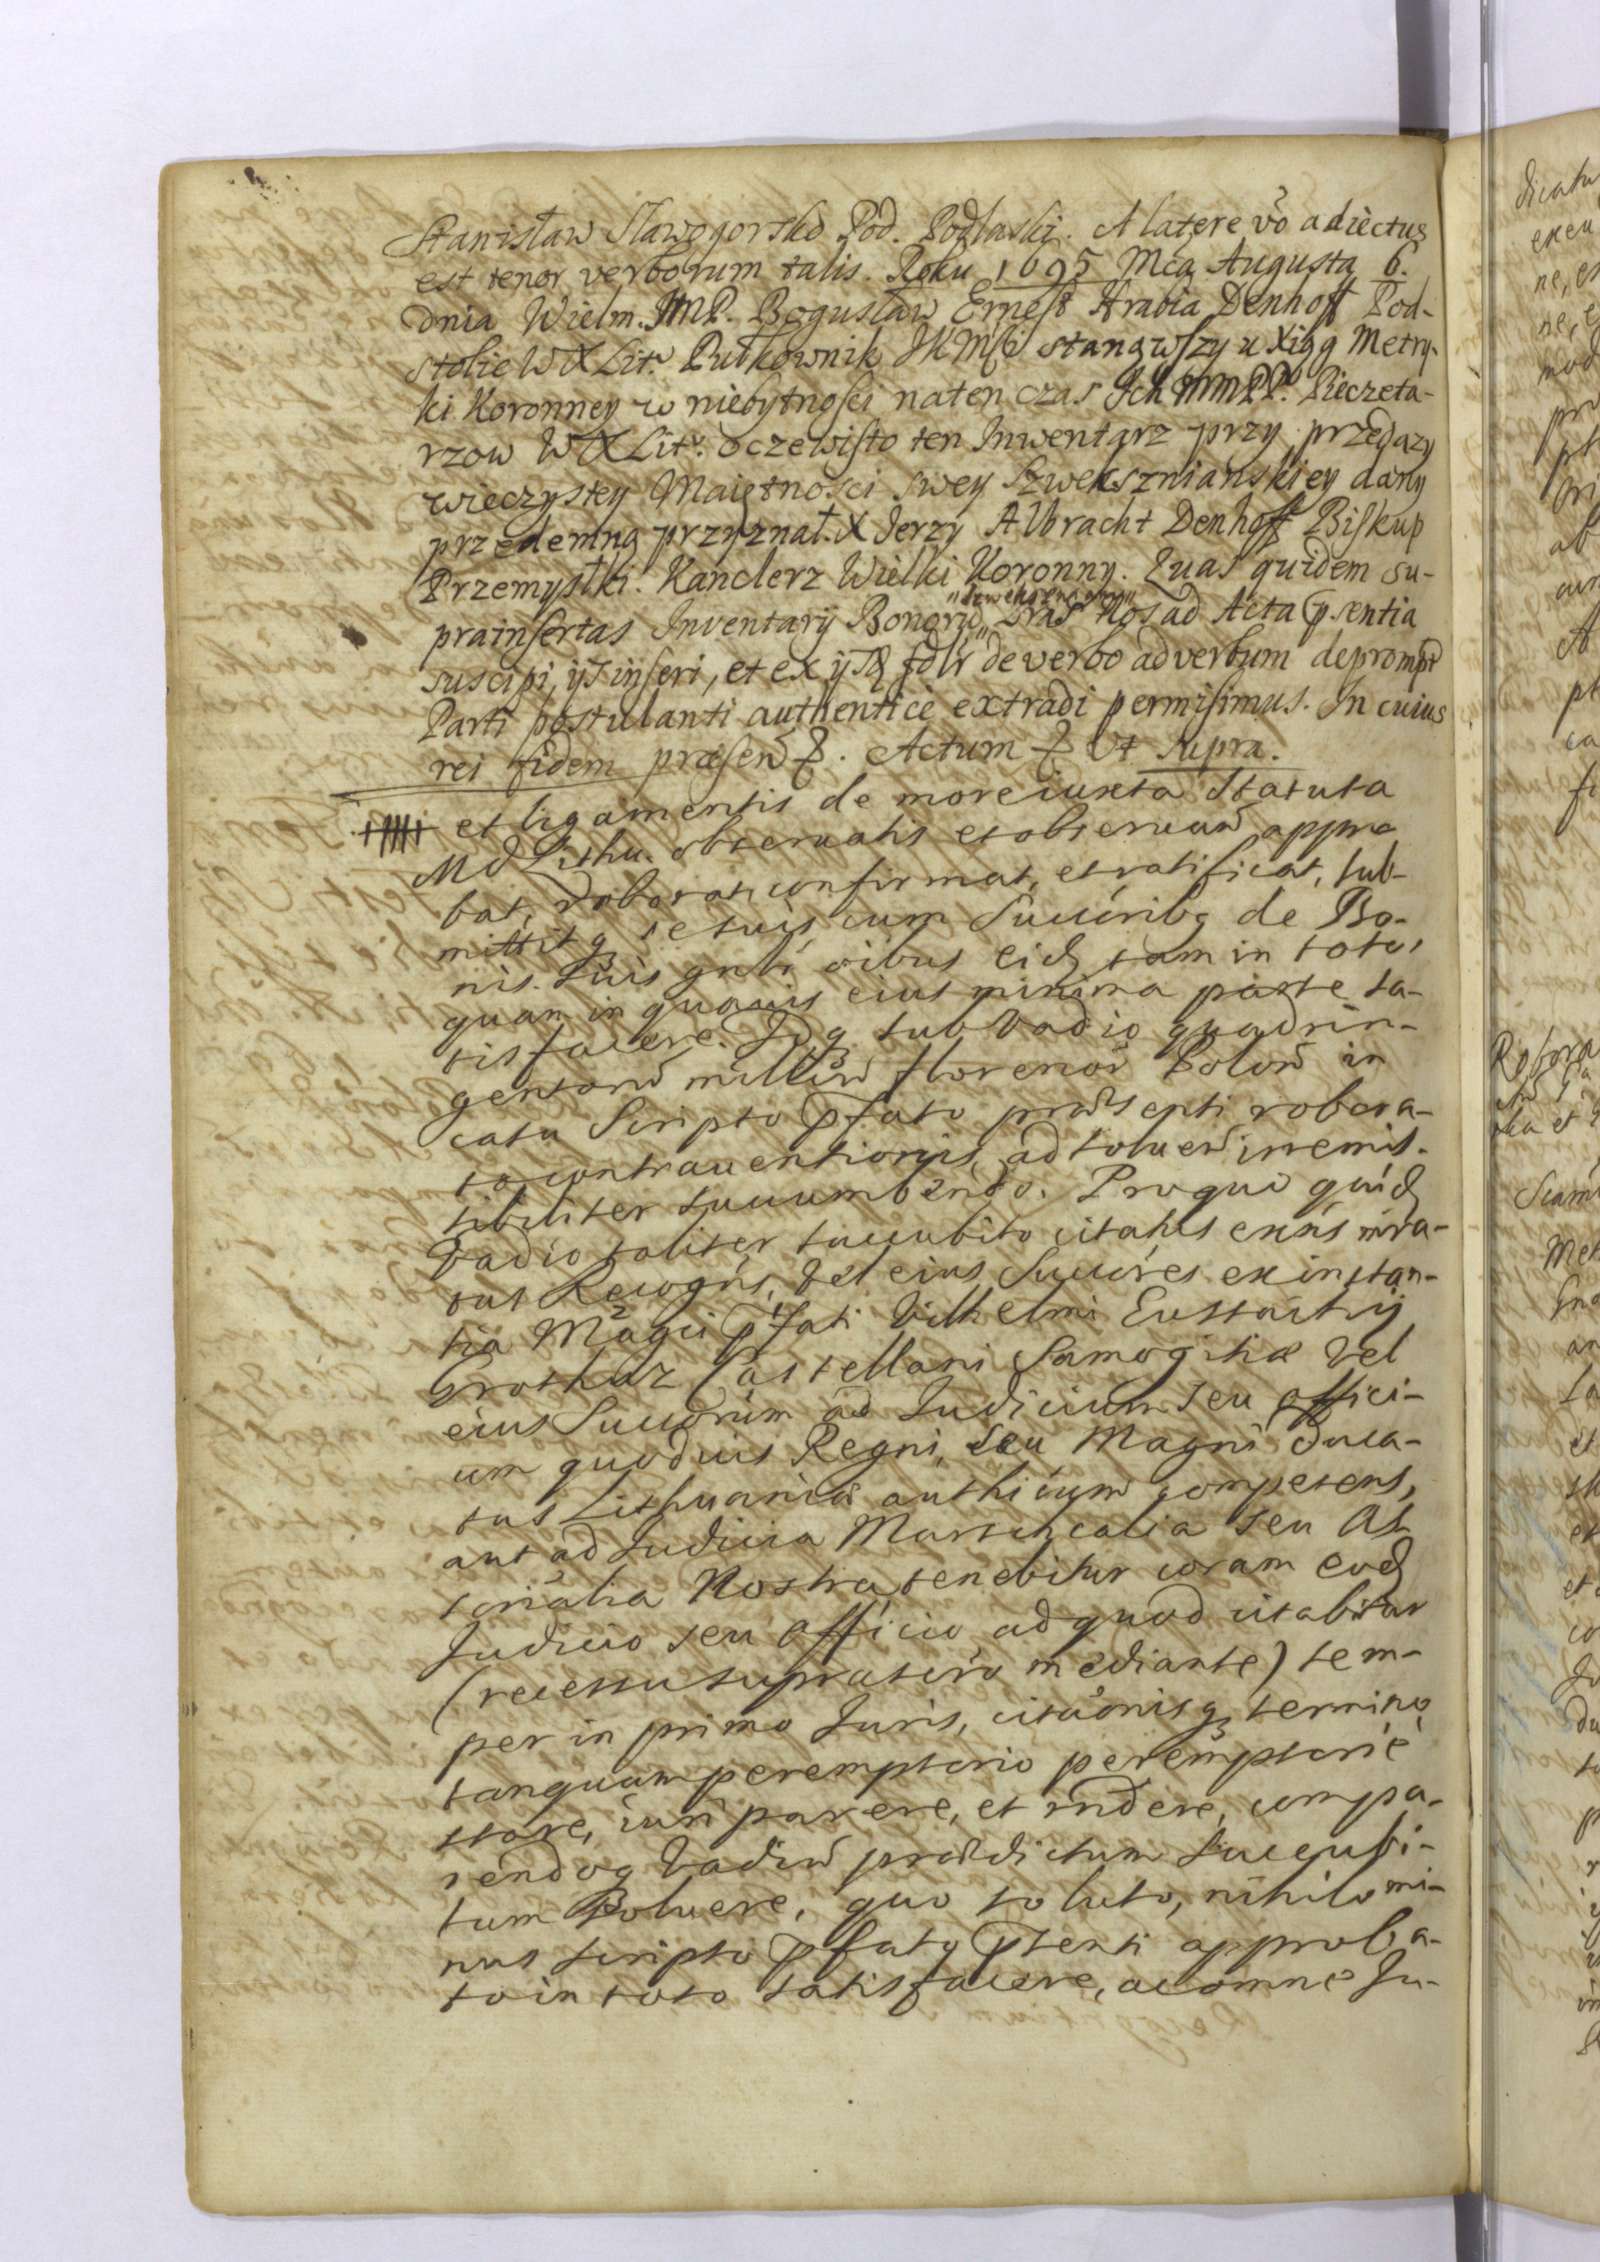 Stanisław Sławogorski Pod. Podlaski. A latere vo adiectus
est tenor verborum talis. Roku 1695 Mca Augusta 6.
dnia Wielm. JMP. Bogusław Ernest Hrabia Denhoff Pod-
stolie W X Litt. Pułkownik JKMści stanąwszy u Xiąg Metry-
ki Koronney w niebytności na ten czas Ich MMPP. Pieczęta-
rzow W X Litt. oczewisto ten Inwentarz przy przedazy
wieczystey Maiętności swey Szwekszniańskiey dany
przedemną przyznał. X Jerzy Albracht Denhoff Biskup
Przemyslki. Kanclerz Wielki Koronny. Quas quidem su-
prainsertas Inventarij Bonorū Lras Nos ad Acta p.sentia
suscipi, ijs inseri, et ex ijsq fdlr de verbo ad verbum deprompt
Parti postulanti authenticè extradi permisimus. In cuius
rei fidem præsen &. Actum & Ut supra.
et ligamentis de more iuxta Statuta
M D Lithu. observatis et observan appro
bat, roborat confirmat, et ratificat, sub-
mittitq se suis cum Succribq de Bo-
nis suis gnli oibus eidq tam in toto,
quam in quavis eius minima parte sa-
tisfacere. Idq sub Vadio quadrin-
gentorū milliū florenor Polon in
catu Scripto pfato præsenti robora-
to contraventionis, ad solven irremis-
sibiliter succumbendo. Proquo quidq
Vadio taliter succubito citatus ensis mra-
tus Recogns, vel eius Succres ex instan-
tia Magci pfati Vilhelmi Eustachij
Grothuz Castellani Samogitiæ vel
eius Succorum ad Judicium seu offici-
um quoduis Regni, seu Magni Duca-
tus Lithuaniæ authicum competens,
aut ad Judicia Marschcalia seu As
sorialia Nostra tenebitur coram eodq
Judicio seu officio ad quod citabitur
(recessu supra mediante) sem-
per in primo Juris, citaonisq termino
tanquam peremptorio peremptoriè
stare, iuri parere, et rndere, compa-
rendoq Vadiū prædictum succubi-
tum solvere, quo soluto, nihilomi-
nus scripto pfato pſenti approba-
to in toto satisfacere, ac omne Ju-